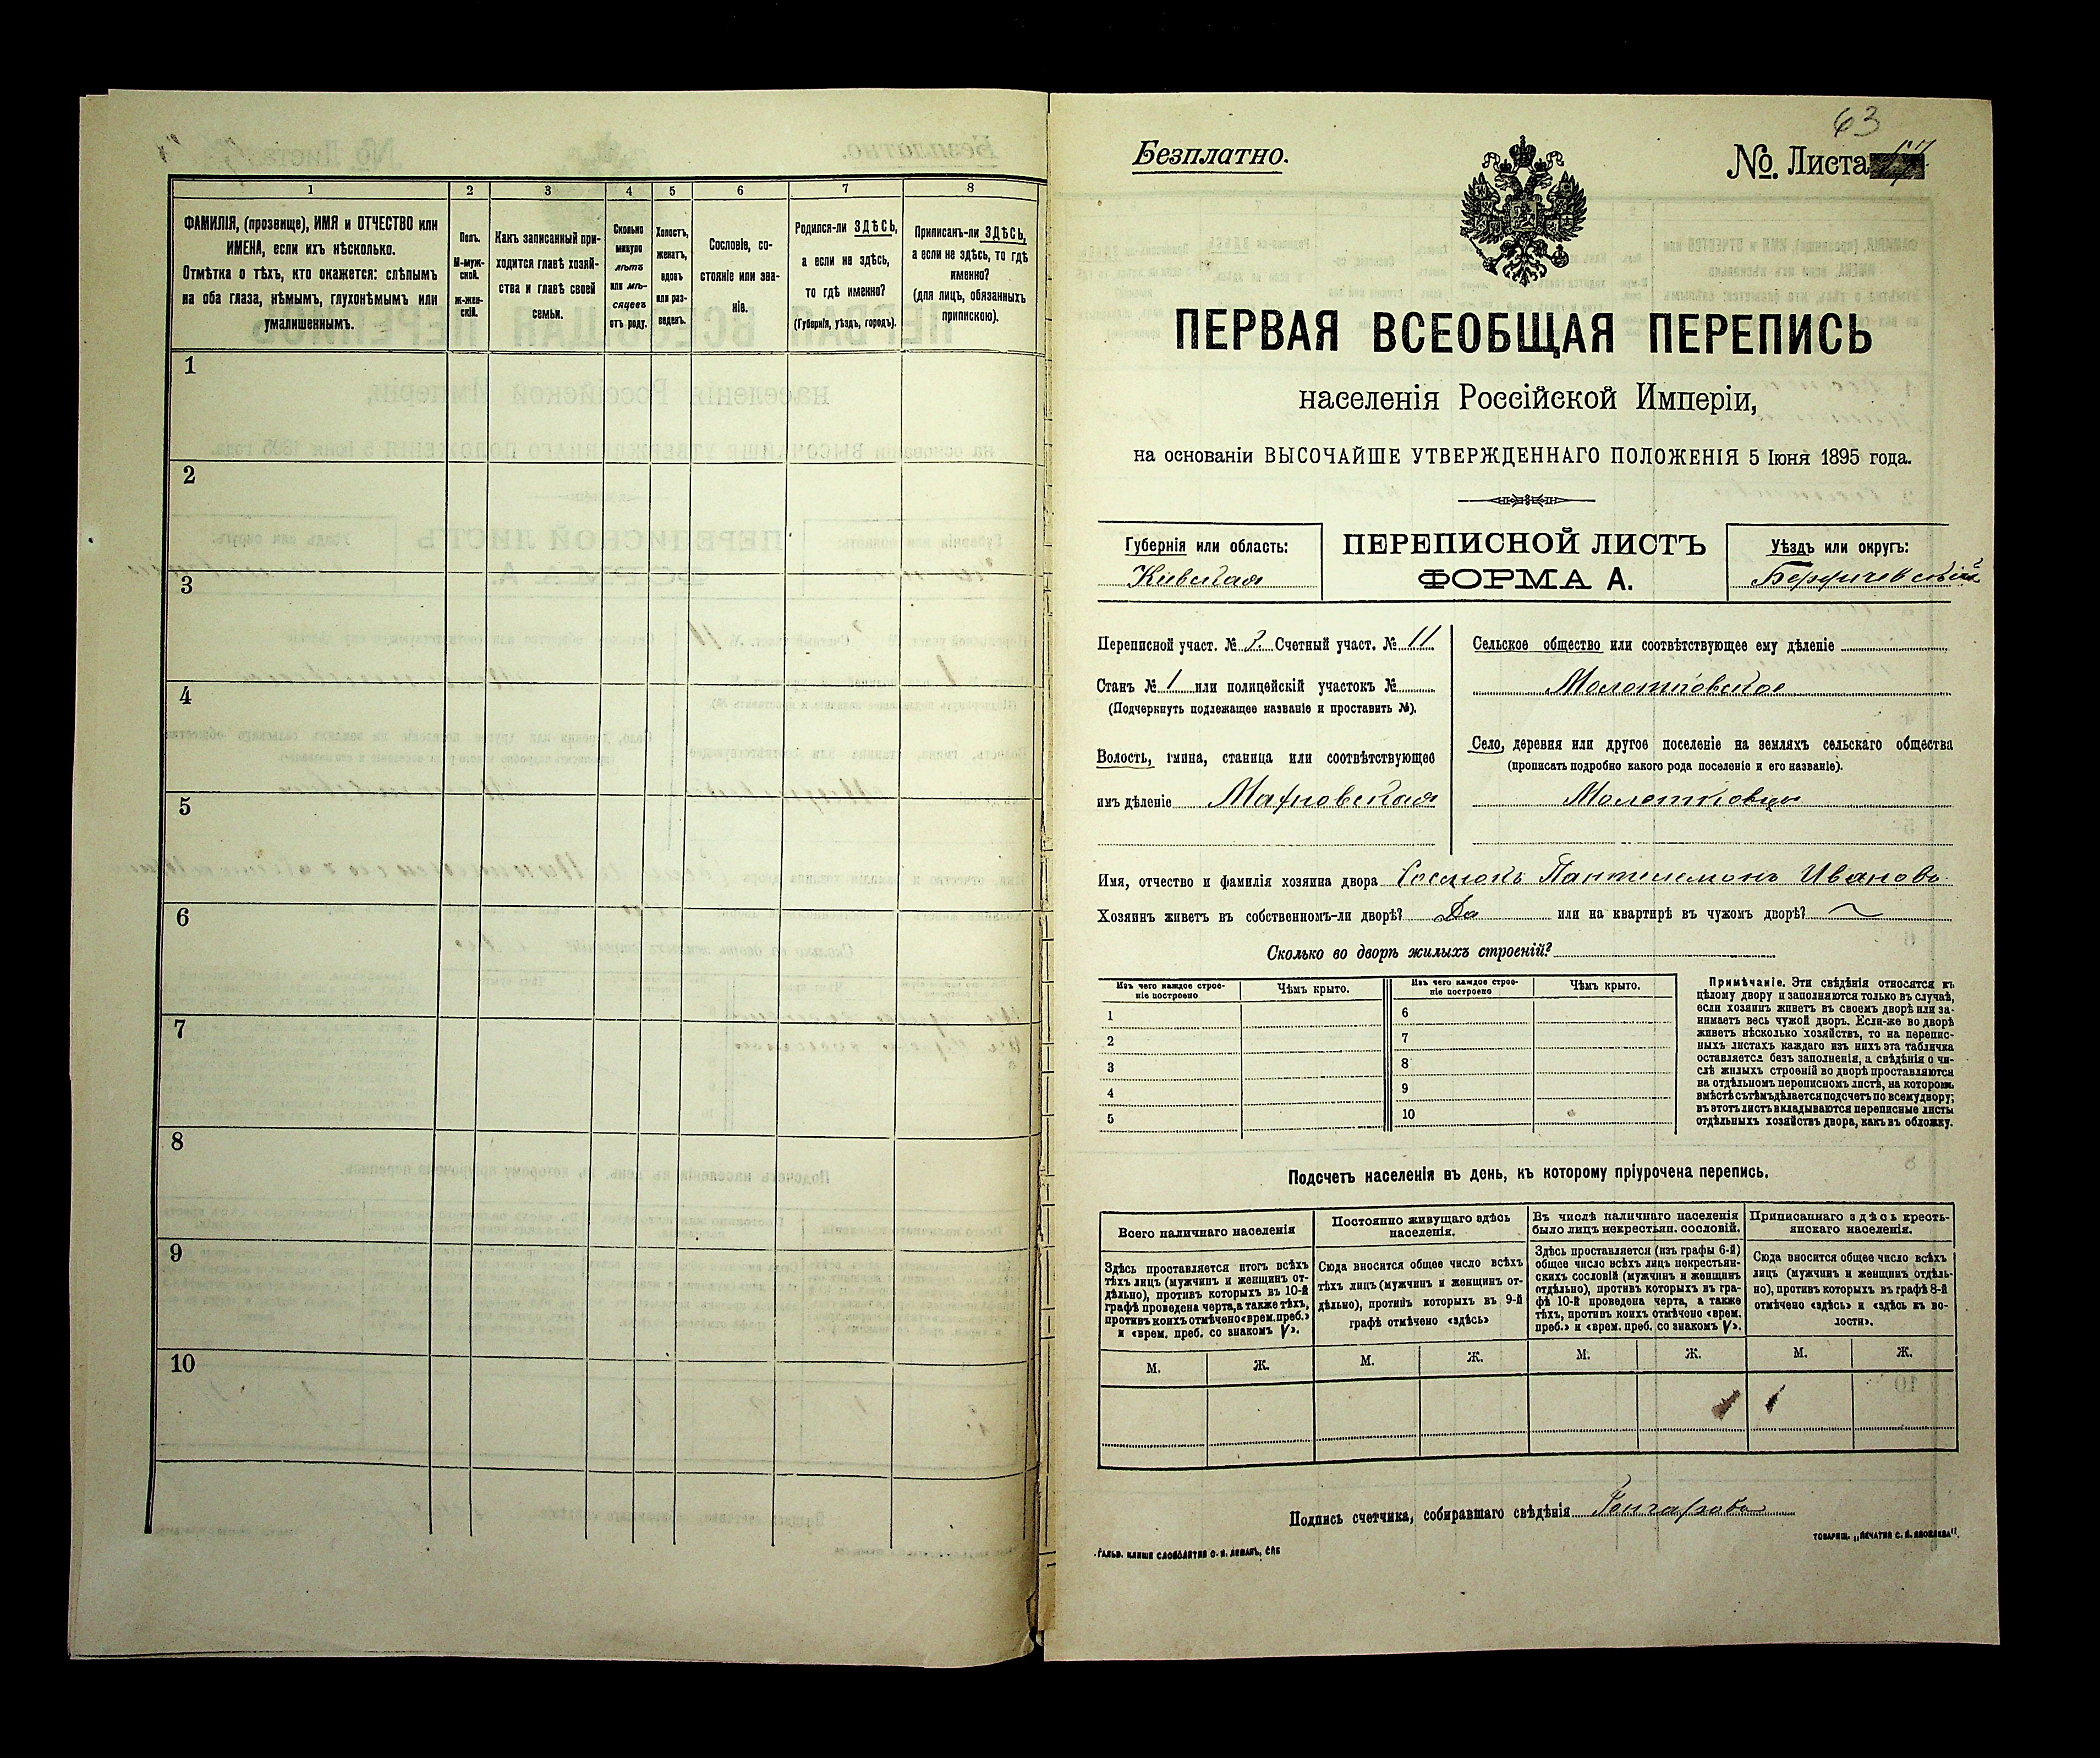 1
2
3
4
5
6
7
8
ФАМИЛІЯ, (прозвище), ИМЯ и ОТЧЕСТВО или
ИМЕНА, если ихъ нѣсколько.
Отмѣтка о тѣхъ, кто окажется: слѣпымъ
на оба глаза, нѣмымъ, глухонѣмымъ или
умалишеннымъ.
Полъ.
М-муж-
ской.
ж-жен-
скій.
Какъ записанный при-
ходится главѣ хозяй-
ства и главѣ своей
семьи.
Сколько
минуло
лѣтъ
или мѣ-
сяцевъ
отъ роду.
Холостъ,
женатъ,
вдовъ
или раз-
веденъ.
Сословіе, со-
стояніе или зва-
ніе.
Родился-ли ЗДѢСЬ,
а если не здѣсь,
то гдѣ именно?
(Губернія, уѣздъ, городъ).
Приписанъ-ли ЗДѢСЬ,
а если не здѣсь, то гдѣ
именно?
(для лицъ, обязанныхъ
припискою).
1
2
3
4
5
6
7
8
9
10
63
Безплатно.
№. Листа
ПЕРВАЯ ВСЕОБЩАЯ ПЕРЕПИСЬ
населенія Россійской Имперіи,
на основаніи ВЫСОЧАЙШЕ УТВЕРЖДЕННАГО ПОЛОЖЕНІЯ 5 Іюня 1895 года.
Губернія или область:
Кіевская
ПЕРЕПИСНОЙ ЛИСТЪ
ФОРМА А.
Уѣздъ или округъ:
Бердичевскій
Переписной участ. № 2. Счетный участ. № 11
Станъ № 1 или полицейскій участокъ №
(Подчеркнуть подлежащее названіе и проставить №).
Волость, гмина, станица или соотвѣтствующее
имъ дѣленіе Махновская
Сельское общество или соотвѣтствующее ему дѣленіе
Молотковское
Село, деревня или другое поселеніе на земляхъ сельскаго общества
(прописать подробно какого рода поселеніе и его названіе).
Молотковцы
Имя, отчество и фамилія хозяина двора Пантелемонъ Ивановъ
Хозяинъ живетъ въ собственномъ-ли дворѣ? Да или на квартирѣ въ чужомъ дворѣ?
Сколько во дворѣ жилыхъ строеній?
Изъ чего каждое строе-
ніе построено
Чѣмъ крыто.
Изъ чего каждое строе-
ніе построено
Чѣмъ крыто.
1
2
3
4
5
6
7
8
9
10
Примѣчаніе. Эти свѣдѣнія относятся къ
цѣлому двору и заполняются только въ случаѣ,
если хозяинъ живетъ въ своемъ дворѣ или за-
нимаетъ весь чужой дворъ. Если-же во дворѣ
живетъ нѣсколько хозяйствъ, то на перепис-
ныхъ листахъ каждаго изъ нихъ эта табличка
оставляется безъ заполненія, а свѣдѣнія о чи-
слѣ жилыхъ строеній во дворѣ проставляются
на отдѣльномъ переписномъ листѣ, на которомъ
вмѣстѣ съ тѣмъ дѣлается подсчетъ по всему двору;
въ этотъ листъ вкладываются переписные листы
отдѣльныхъ хозяйствъ двора, какъ въ обложку.
Подсчетъ населенія въ день, къ которому пріурочена перепись.
Всего наличнаго населенія
Здѣсь проставляется итогъ всѣхъ
тѣхъ лицъ (мужчинъ и женщинъ от-
дѣльно), противъ которыхъ въ 10-й
графѣ проведена черта, а также тѣхъ,
противъ коихъ отмѣчено «врем. преб.»
и «врем. преб. со знакомъ V».
Постоянно живущаго здѣсь
населенія.
Сюда вносится общее число всѣхъ
тѣхъ лицъ (мужчинъ и женщинъ от-
дѣльно), противъ которыхъ въ 9-й
графѣ отмѣчено «здѣсь»
Въ числѣ наличнаго населенія
было лицъ некрестьян. сословій.
Здѣсь проставляется (изъ графы 6-й)
общее число всѣхъ лицъ некрестьян-
скихъ сословій (мужчинъ и женщинъ
отдѣльно), противъ которыхъ въ гра-
фѣ 10-й проведена черта, а также
тѣхъ, противъ коихъ отмѣчено «врем.
преб.» и «врем. преб. со знакомъ V».
Приписаннаго здѣсь кресть-
янскаго населенія.
Сюда вносится общее число всѣхъ
лицъ (мужчинъ и женщинъ отдѣль-
но), противъ которыхъ въ графѣ 8-й
отмѣчено «здѣсь» и «здѣсь къ во-
лости».
М.
Ж.
М.
Ж.
М.
Ж.
М.
Ж.
Подпись счетчика, собиравшаго свѣдѣнія
ТОВАРИЩ. „ПЕЧАТНЯ С. П. ЯКОВЛЕВА".